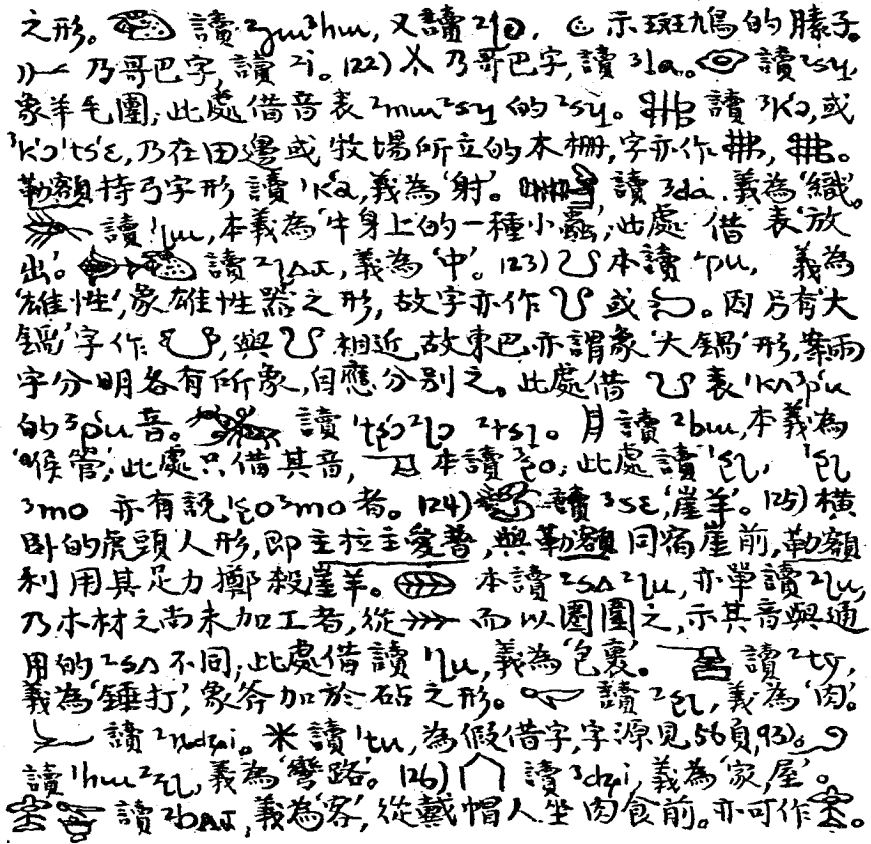 之形。 讀²ʐɯ³hɯ, 又讀 示斑鳩的膆子。
乃哥巴字,讀²i。122) 乃哥巴字,讀³la。 讀²sy,
象羊毛團;此處借音表²mɯ²sy的²sy。 讀³k'ɔ,或
³k'ɔ'ts'ɛ,乃在田邊或牧場所立的木柵,字亦作 , 。
勒額持弓字形讀¹k'a,義為‘射’。 讀³da.義為‘織’。
讀 ,本義為‘牛身上的一種小蟲’;此處借表‘放
出’。 讀 ,義為‘中’。123) 本讀¹pu, 義為
‘雄性’,象雄性器之形,故字亦作 或 。因另有‘大
鍋’字作 ,與 相近,故東巴亦謂象‘大鍋’形,案兩
字分明各有所象,自應分別之。此處借 表¹kʌ³p'u
的³p'u音。 讀 。 讀²bɯ,本義為
‘喉管’;此處只借其音, 本讀 ;此處讀 ,
³mo 亦有說 ³mo者。124) 讀³sɛ,‘崖羊’。125)橫
卧的虎頭人形,即主拉主愛普,與勒額同宿崖前,勒額
利用其足力擲殺崖羊。 本讀²sʌ ,亦單讀 ,
乃木材之尚未加工者,從 而以圈圍之,示其音與通
用的²sʌ不同;此處借讀 ,義為‘包裹’。 讀²ty,
義為‘錘打’,象斧加於砧之形。 讀 ,義為‘肉’。
讀 。 讀¹tu,為假借字,字源見56頁,93)。
讀 ,義為‘彎路’。126) 讀 ,義為‘家,屋’。
讀 ,義為‘客’,從戴帽人坐肉食前。亦可作 。